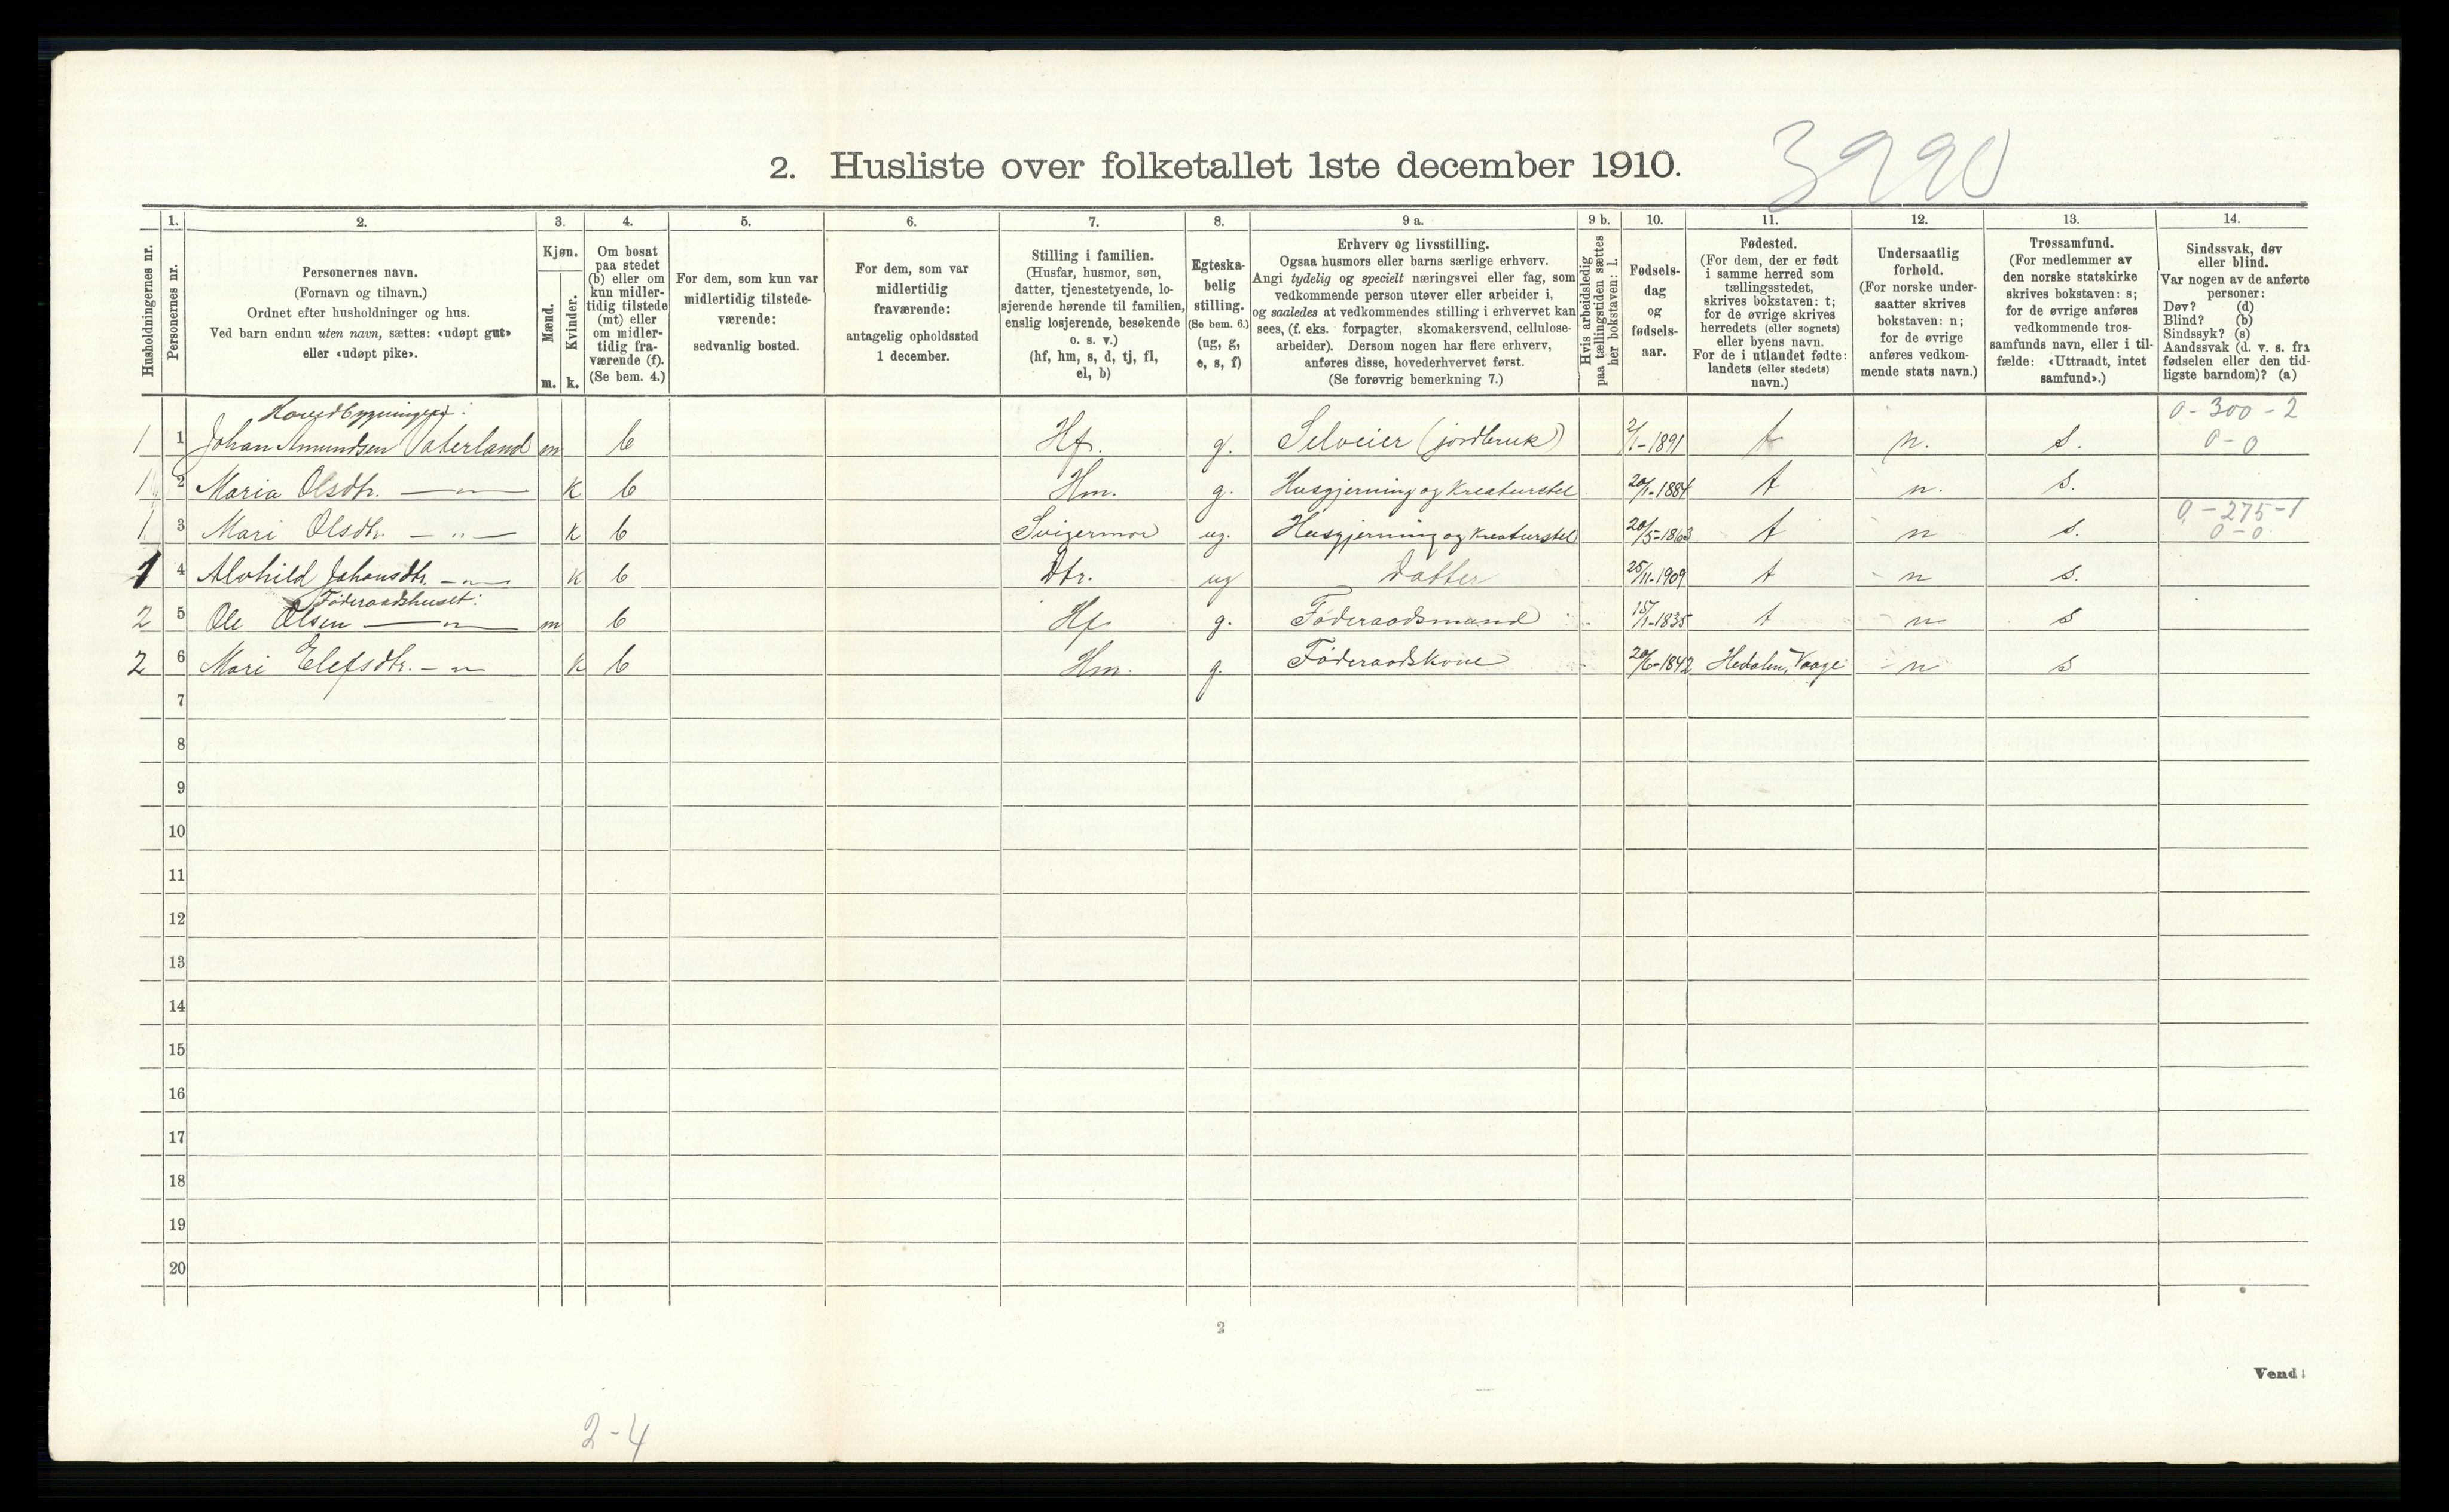 3990
2. Husliste over folketallet 1ste december 1910.
Husholdningernes nr.
1.
Personernes nr.
2.
Personernes navn.
(Fornavn og tilnavn.)
Ordnet efter husholdninger og hus.
Ved barn endnu uten navn, sættes: «udøpt gut»
eller «udøpt pike».
3.
Kjøn.
Mænd.
m.
Kvinder.
k.
4.
Om bosat
paa stedet
(b) eller om
kun midler-
tidig tilstede
(mt) eller
om midler-
tidig fra-
værende (f).
(Se bem. 4.)
5.
For dem, som kun var
midlertidig tilstede-
værende:
sedvanlig bosted.
6.
For dem, som var
midlertidig
fraværende:
antagelig opholdssted
1 december.
7.
Stilling i familien.
(Husfar, husmor, søn,
datter, tjenestetyende, lo-
sjerende hørende til familien,
enslig losjerende, besøkende
o. s. v.)
(hf, hm, s, d, tj, fl,
el, b)
8.
Egteska-
belig
stilling.
(Se bem. 6.)
(ug, g,
e, s, f)
9 a.
Erhverv og livsstilling.
Ogsaa husmors eller barns særlige erhverv.
Angi tydelig og specielt næringsvei eller fag, som
vedkommende person utøver eller arbeider i,
og saaledes at vedkommendes stilling i erhvervet kan
sees, (f. eks. forpagter, skomakersvend, cellulose-
arbeider). Dersom nogen har flere erhverv,
anføres disse, hovederhvervet først.
(Se forøvrig bemerkning 7.)
9 b.
Hvis arbeidsledig
paa tællingstiden sættes
her bokstaven: l.
10.
Fødsels-
dag
og
fødsels-
aar.
11.
Fødested.
(For dem, der er født
i samme herred som
tællingsstedet,
skrives bokstaven: t;
for de øvrige skrives
herredets (eller sognets)
eller byens navn.
For de i utlandet fødte:
landets (eller stedets)
navn.)
12.
Undersaatlig
forhold.
(For norske under-
saatter skrives
bokstaven: n;
for de øvrige
anføres vedkom-
mende stats navn.)
13.
Trossamfund.
(For medlemmer av
den norske statskirke
skrives bokstaven: s;
for de øvrige anføres
vedkommende tros-
samfunds navn, eller i til-
fælde: «Uttraadt, intet
samfund».)
14.
Sindssvak, døv
eller blind.
Var nogen av de anførte
personer:
Døv? (d)
Blind? (b)
Sindssyk? (s)
Aandssvak (d. v. s. fra
fødselen eller den tid-
ligste barndom)? (a)
Hovedbygningen:
0-300-2
1 1 Johan Amundsen Vaterland m b Hf. g. Selveier (jordbruk) 2/1-1891 t n. s. 0-0
1 2 Maria Olsdtr. —"— k b Hm. g. Husgjerning og Kreaturstel 20/1-1884 t n. s.
0-275-1
1 3 Mari Olsdtr. —"— k b Svigermor ug. Husgjerning og Kreaturstel 20/5-1863 t n s. 0-0
1 4 Alvhild Johansdtr. —"— k b Dtr. ug Datter 25/11-1909 t n s.
Føderaadshuset:
2 5 Ole Olsen —"— m b Hf g. Føderaadsmand 15/1-1835 t n s
2 6 Mari Elefsdtr. —"— k b Hm. g. Føderaadskone 20/6-1842 Hedalen, Vaage n s
7
8
9
10
11
12
13
14
15
16
17
18
19
20
2
Vend!
2-4